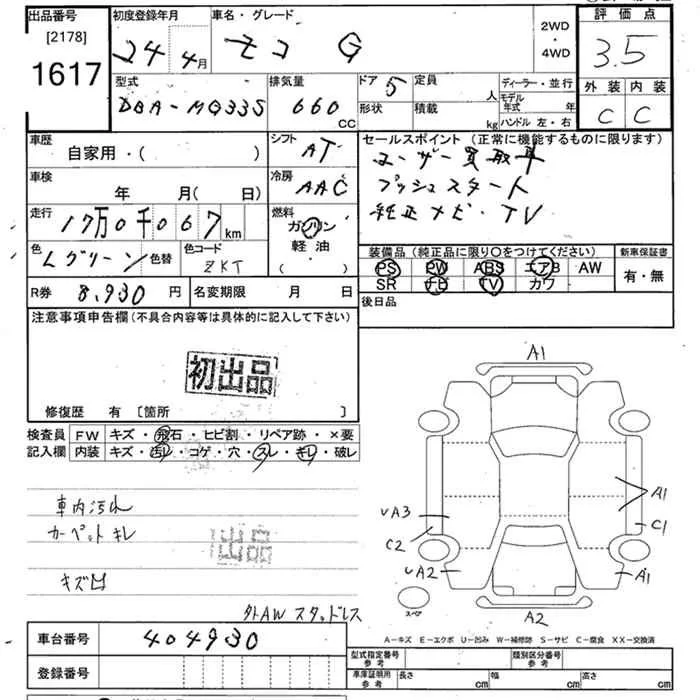 出品番号 初度登録年月 車名・グレード 2WD ・ 4WD 評価点
[2178]
1617 24年 4月 モコ G 3.5
型式 排気量 ドア 5 定員 人 ディーラー・並行 外装 内装
DBA-MG33S 660 CC 形状 積載 kg モデル年式 年 ハンドル 左・右 C C
車歴 自家用・( ) シフト AT セールスポイント (正常に機能するものに限ります)
ユーザー買取車
車検 年 月( 日) 冷房 AAC プッシュスタート
走行 17万0千067km 燃料 ガソリン・軽油・( ) 純正ナビ・TV
色 Lグリーン 色替 色コード ZKT 装備品 (純正品に限り○をつけてください) 新車保証書
PS PW ABS エアB AW 有・無
SR ナビ TV カワ
R券 8,930円 名変期限 月 日 後日品
注意事項申告欄(不具合内容等は具体的に記入して下さい)
初出品
修復歴 有 [箇所 ]
検査員 FW キズ・飛石・ヒビ割・リペア跡・×要
記入欄 内装 キズ・汚レ・コゲ・穴・スレ・キレ・破レ
A1
車内汚れ
カーペットキレ
出品
キズ凹
外AW スタッドレス
UA3
C2
UA2
A1
C1
A1
スペア
A2
車台番号 404930 A−キズ E−エクボ U−凹み W−補修跡 S−サビ C−腐食 XX−交換済
登録番号 型式指定番号 参考 類別区分番号 参考
車庫証明用 参考 長さ cm 幅 cm 高さ cm